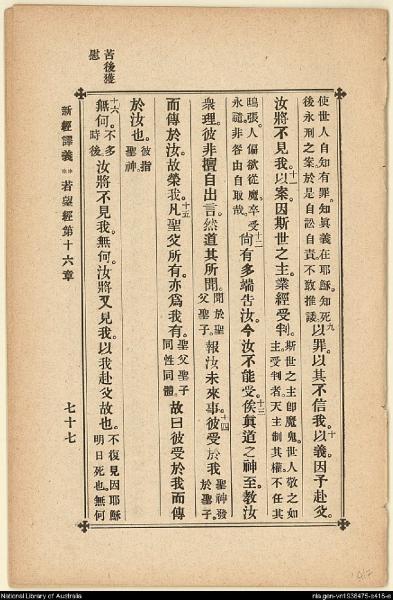 苦後獲
慰
使世人自知有罪。知眞義在耶穌。知死
後永刑之案於是自訟自責。不敢推諉。
九以罪。以其不信我。十以義。因予赴父。
汝將不見我。十一以案。因斯世之主。業經受判。
斯世之主卽魔鬼。世人敬之如
主。受判者。天主制其權。不任其
鴟張。人偏欲從魔。卒受
永禍。非咎由自取哉。
十二尙有多端告汝。今汝不能受。十三俟眞道之神至。教汝
衆理。彼非擅自出言。然道其所聞。
聞於聖
父聖子。
報汝未來事。十四彼受於我
聖神發
於聖子。
而傳於汝。故榮我。十五凡聖父所有。亦爲我有。
聖父聖子
同性同體。
故曰彼受於我而傳
於汝也。
彼指
聖神。
十六無何。
不多
時後。
汝將不見我。無何。汝將又見我。以我赴父故也。
不復見因耶穌
明日死也。無何
新經譯義 ** 若望經第十六章 七十七
National Library of Australia